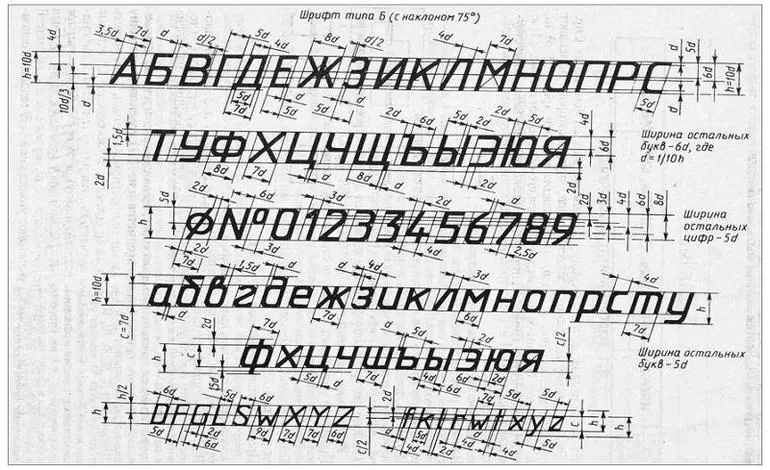 Шрифт типа Б (с наклоном 75°)
3,5d 7d d d/2 5d 4d 8d d/2 4d 7d
4d h=10d АБВГДЕЖЗИКЛМНОПРС d 5d 6d h=10d
10d/3 d 5d 7d 5d d 5d d 5d d
2d 6d 5d 2d 2d 5d
1,5d ТУФХЦЧШЩЪЫЭЮЯ 4d 6d
2d 8d 7d d 8d d 2d 2d
Ширина остальных
букв-6d, где
d=1/10h
2d 6d 3d d d d
5d h ф№01233456789 2d 3d 4d 6d 8d
2d 7d 3d 4d 2,5d
Ширина
остальных
цифр-5d
1,5d d d 4d 3d 4d
h=10d c=7d абвгдежзиклмнопрсту h
d 7d d 6d 7d
Ширина остальных
букв-5d
2d 7d d 5d d 2d c/2
h c фхцчшъыэюя h
1,5d 5d d 7d 4d 6d 6d 2d
h/2 6d 5d 6d 2d 7d 5d 5d
h DFGLSWXYZ fklrwtxyz c h h
5d 6d 2d 6d 9d 7d 7d 6d c/2 d 4d 5d 2d d 4d d 4d 5d